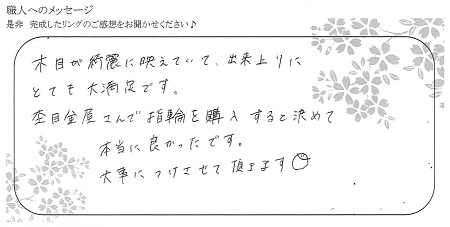 職人へのメッセージ
是非 完成したリングのご感想をお聞かせください♪
木目が綺麗に映えていて、出来上りに
とても大満足です。
杢目金屋さんで指輪を購入すると決めて
本当に良かったです。
大事につけさせて頂きます